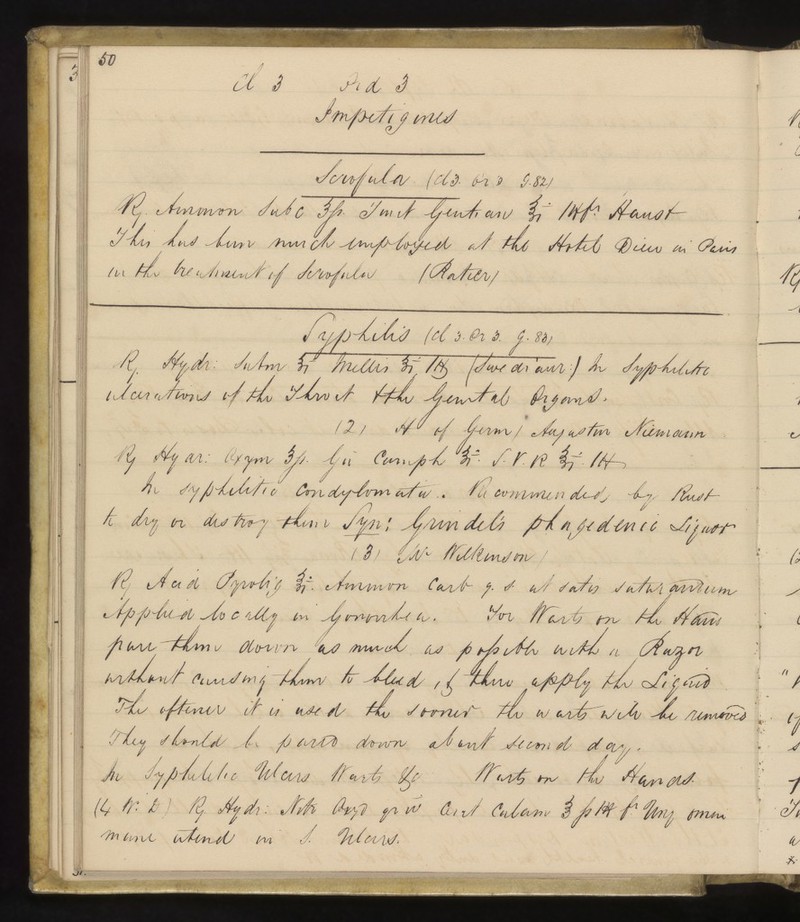 50
3
Cl 3 Ord 3
Impetigines
Scrofula (cl 3. Or 3 g. 82)
℞ Ammon Subc ʒſs Tinct Gentian ℥i M ft Haust
This has been much employed at the Hotel Dieu in Paris
in the treatment of Scrofula (Ratier)
Syphilis (cl 3. Or 3. g. 83)
℞ Hydr: Subm ʒi Mellis ℥i M (Swediaur:) In Syphilitic
ulcerations of the Throat & the Genital Organs.
(2) H of Germ) Augustin Niemann
℞ Hydr: Oxym ʒſs. Camph S. V. R M
In syphilitic condylomata. Recommended by Rust
to dry or destroy them Syn: Grindel's phagedenic Liquor
(3) Mr Wilkinson)
℞ Acid Pyrolig Ammon Carb q. s ut satis
Applied locally in Gonorrhea. For Warts on the
pare them down as much as poſsible with a Razor
without causing them to bleed, & then apply the Liquid
The oftener it is used the sooner the warts will be removed
They should be pared down about second day.
In Syphilitic Ulcers Warts &c Warts on the Hands.
(4 ℞ Hydr: Nitr Oxyd gr Cerat Calam ʒſs M ft Ung omni
mane utend in S. Ulcers.